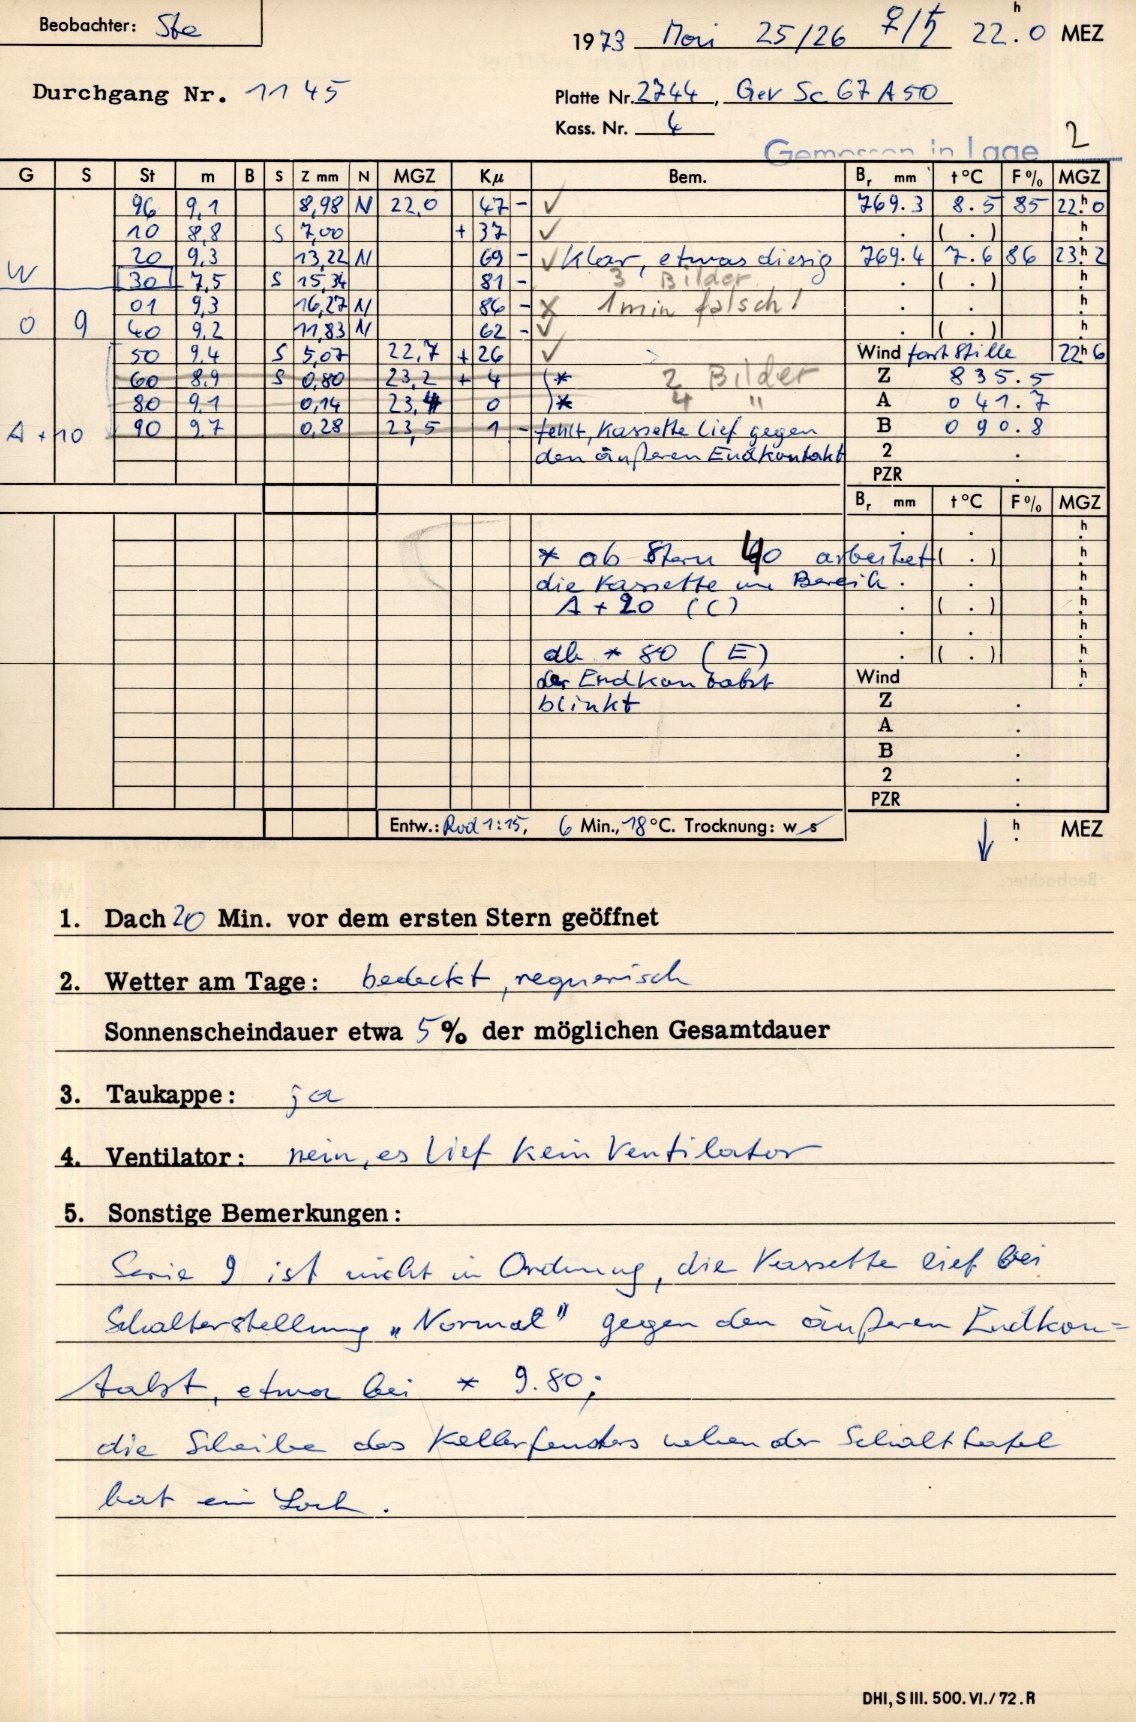 Beobachter: Ste
1973 Mai 25/26 ♀/♄ 22.ʰ0 MEZ
Durchgang Nr. 1145
Platte Nr. 2744, Gev Sc 67 A 50
Kass. Nr. 4
Gemessen in Lage 2
G S St m B S Z mm N MGZ Kμ Bem. Bᵣ mm t°C F% MGZ
96 9,1 8,98 N 22,0 47 - ✓ 769.3 8.5 85 22ʰ0
10 8,8 S 7,00 + 37 ✓ . ( . ) ʰ.
20 9,3 13,22 N 69 - ✓ Klar, etwas diesig 769.4 7.6 86 23ʰ2
W 30 7,5 S 15,34 81 - 3 Bilder . ( . ) ʰ.
01 9,3 16,27 N 86 - x 1 min falsch! . . ʰ.
0 9 40 9,2 11,83 N 62 - ✓ . ( . ) ʰ.
50 9,4 S 5,07 22,7 + 26 ✓ Wind fast Stille 22ʰ6
60 8,9 S 0,80 23,2 + 4 (* 2 Bilder Z 835.5
80 9,1 0,14 23,4 0 )* 4 " A 041.7
A + 10 90 9,7 0,28 23,5 1 - fehlt, Kassette lief gegen B 090.8
den äußeren Endkontakt 2 .
PZR .
Bᵣ mm t°C F% MGZ
. . ʰ.
* ab Stern 40 arbeitet ( . ) ʰ.
die Kassette im Bereich . . ʰ.
A + 20 (C) . ( . ) ʰ.
. . ʰ.
ab * 80 (E) . ( . ) ʰ.
der Endkontakt Wind ʰ.
blinkt Z .
A .
B .
2 .
PZR .
Entw.: Rod 1:15, 6 Min., 18°C. Trocknung: w s ↓ ʰ. MEZ
1. Dach 20 Min. vor dem ersten Stern geöffnet
2. Wetter am Tage: bedeckt, regnerisch
Sonnenscheindauer etwa 5% der möglichen Gesamtdauer
3. Taukappe: ja
4. Ventilator: nein, es lief kein Ventilator
5. Sonstige Bemerkungen:
Serie 9 ist nicht in Ordnung, die Kassette lief bei
Schalterstellung „Normal" gegen den äußeren Endkon=
takt, etwa bei * 9.80;
die Scheibe des Kellerfensters neben der Schalttafel
hat ein Loch.
DHI, S III. 500. VI./72. R